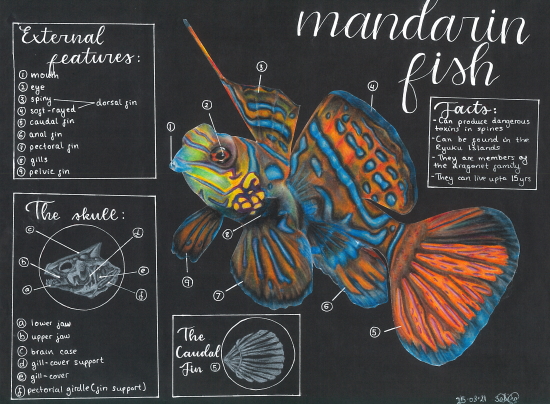 mandarin
fish
External
features:
1 mouth
2 eye
3 spiny
4 soft-rayed
dorsal fin
5 caudal fin
6 anal fin
7 pectoral fin
8 gills
9 pelvic fin
Facts:
- Can produce dangerous
toxins in spines
- Can be found in the
Ryuku Islands
- They are members of
the dragonet family
- They can live upto 15yrs
1
2
3
4
5
6
7
8
9
The skull:
c
d
b
e
a
f
a lower jaw
b upper jaw
c brain case
d gill-cover support
e gill-cover
f pectorial girdle (fin support)
The
Caudal
Fin 5
25-03-21